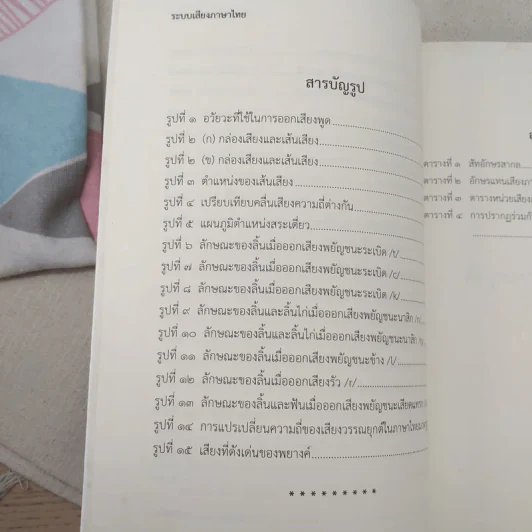 ระบบเสียงภาษาไทย
สารบัญรูป
รูปที่ ๑ อวัยวะที่ใช้ในการออกเสียงพูด
รูปที่ ๒ (ก) กล่องเสียงและเส้นเสียง
รูปที่ ๒ (ข) กล่องเสียงและเส้นเสียง
รูปที่ ๓ ตำแหน่งของเส้นเสียง
รูปที่ ๔ เปรียบเทียบคลื่นเสียงความถี่ต่างกัน
รูปที่ ๕ แผนภูมิตำแหน่งสระเดี่ยว
รูปที่ ๖ ลักษณะของลิ้นเมื่อออกเสียงพยัญชนะระเบิด /t/
รูปที่ ๗ ลักษณะของลิ้นเมื่อออกเสียงพยัญชนะระเบิด /c/
รูปที่ ๘ ลักษณะของลิ้นเมื่อออกเสียงพยัญชนะระเบิด /k/
รูปที่ ๙ ลักษณะของลิ้นและลิ้นไก่เมื่อออกเสียงพยัญชนะนาสิก
รูปที่ ๑๐ ลักษณะของลิ้นและลิ้นไก่เมื่อออกเสียงพยัญชนะนาสิก
รูปที่ ๑๑ ลักษณะของลิ้นเมื่อออกเสียงพยัญชนะข้าง /l/
รูปที่ ๑๒ ลักษณะของลิ้นเมื่อออกเสียงรัว /r/
รูปที่ ๑๓ ลักษณะของลิ้นและฟันเมื่อออกเสียงพยัญชนะเสียดแทรก
รูปที่ ๑๔ การแปรเปลี่ยนความถี่ของเสียงวรรณยุกต์ในภาษาไทย
รูปที่ ๑๕ เสียงที่ดังเด่นของพยางค์
* * * * * * * * *
ตารางที่ ๑ สัทอักษรสากล
ตารางที่ ๒ อักษรแทนเสียง
ตารางที่ ๓ ตารางหน่วยเสียง
ตารางที่ ๔ การปรากฏร่วม